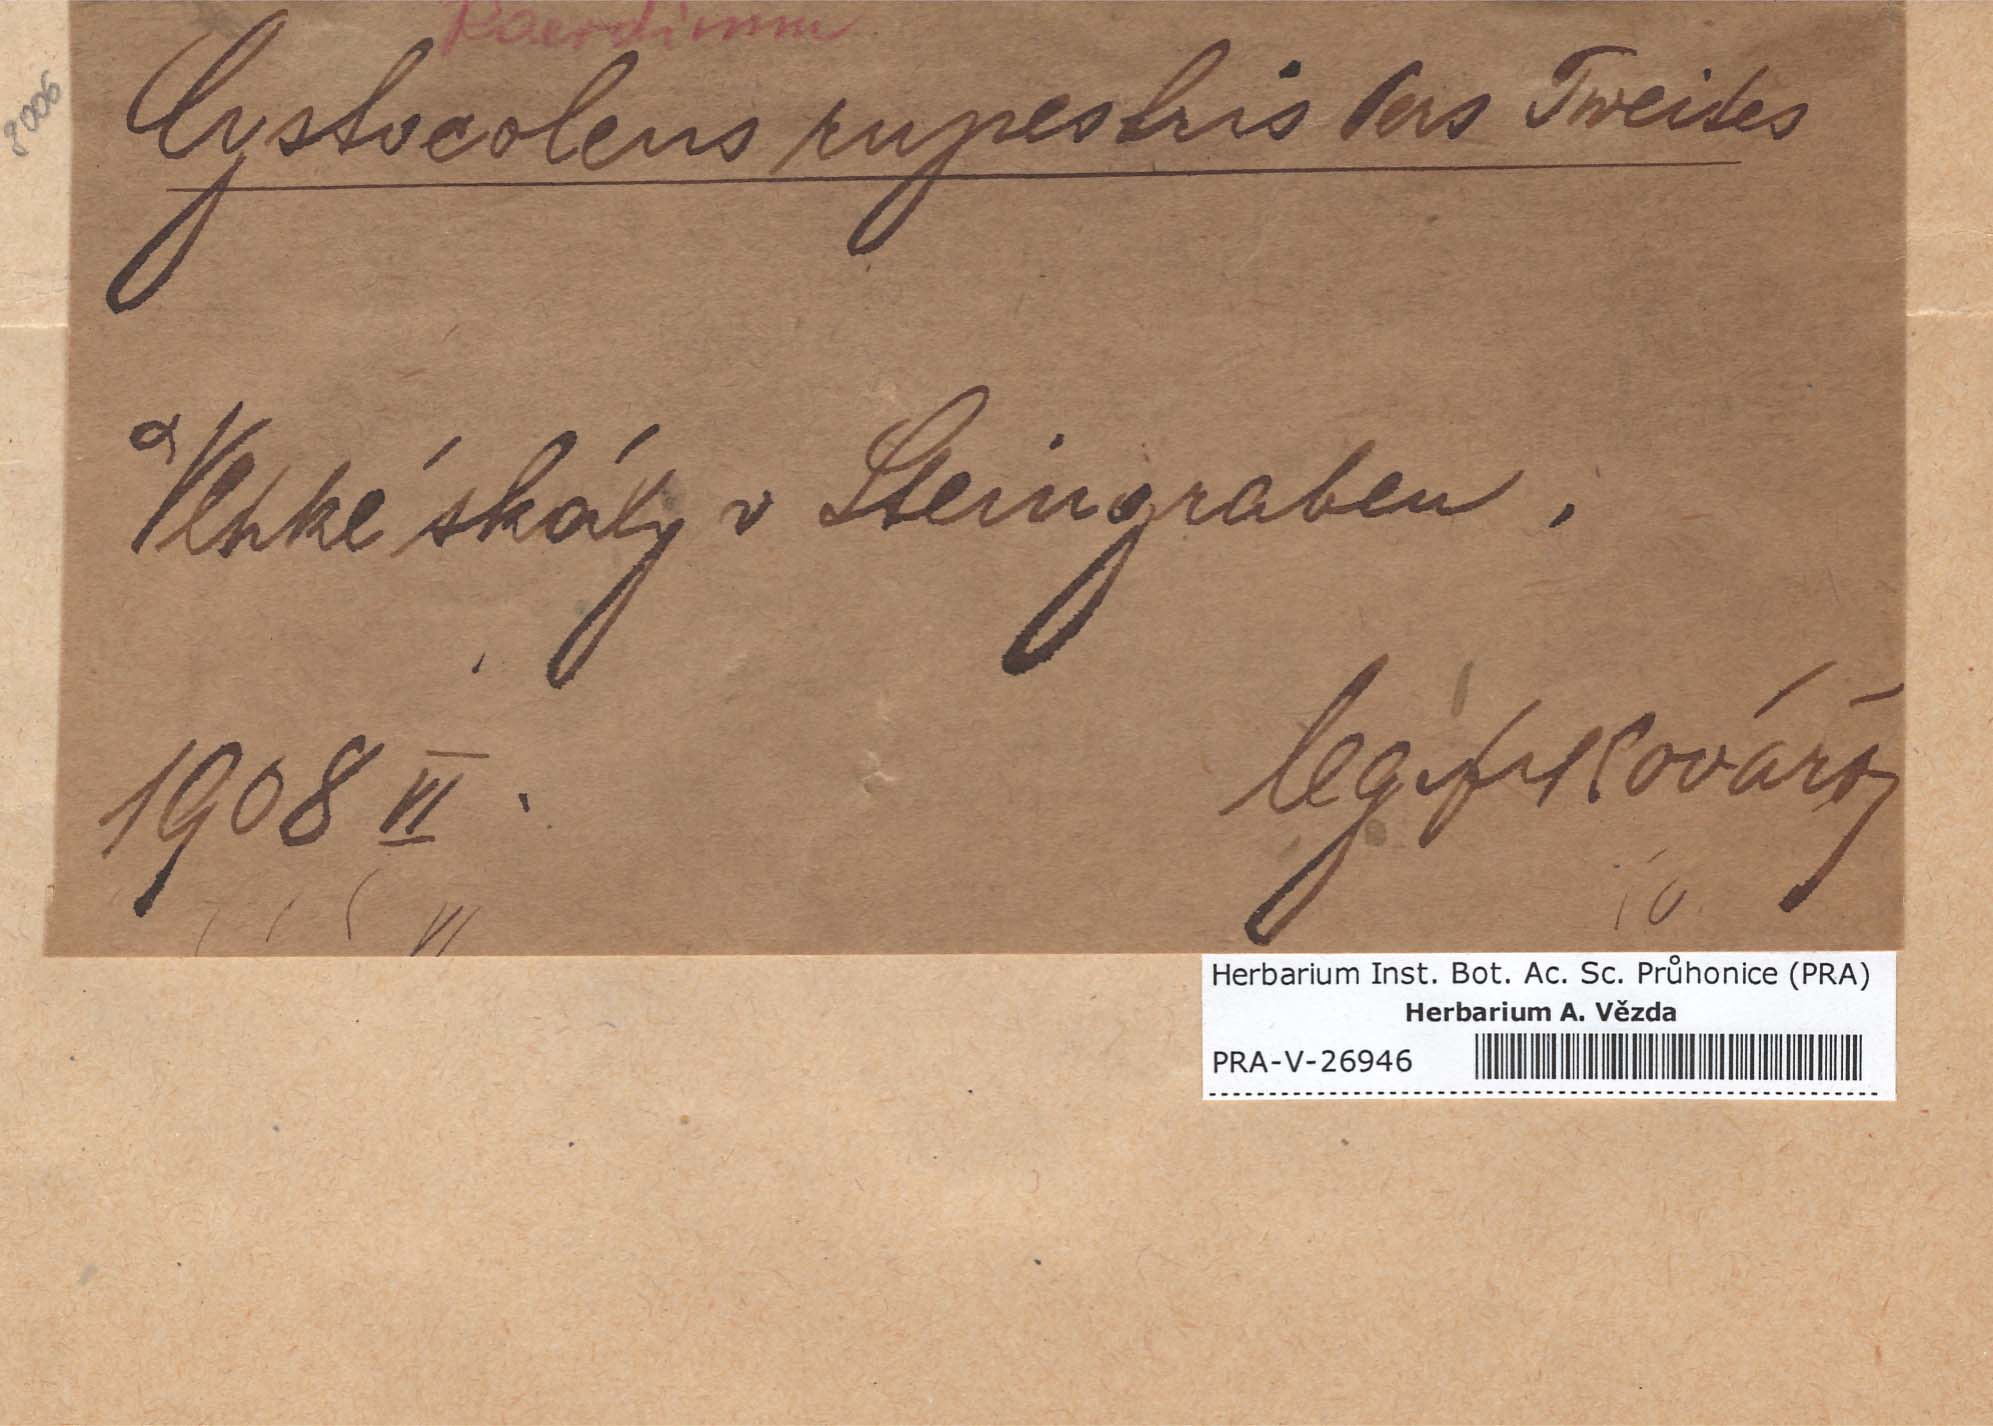 Racodium
Cystocoleus rupestris Pers Tweites
8006
Vlhké skály v Steingraben.
1908 VI.
leg. Fr Kovář
Herbarium Inst. Bot. Ac. Sc. Průhonice (PRA)
Herbarium A. Vězda
PRA-V-26946